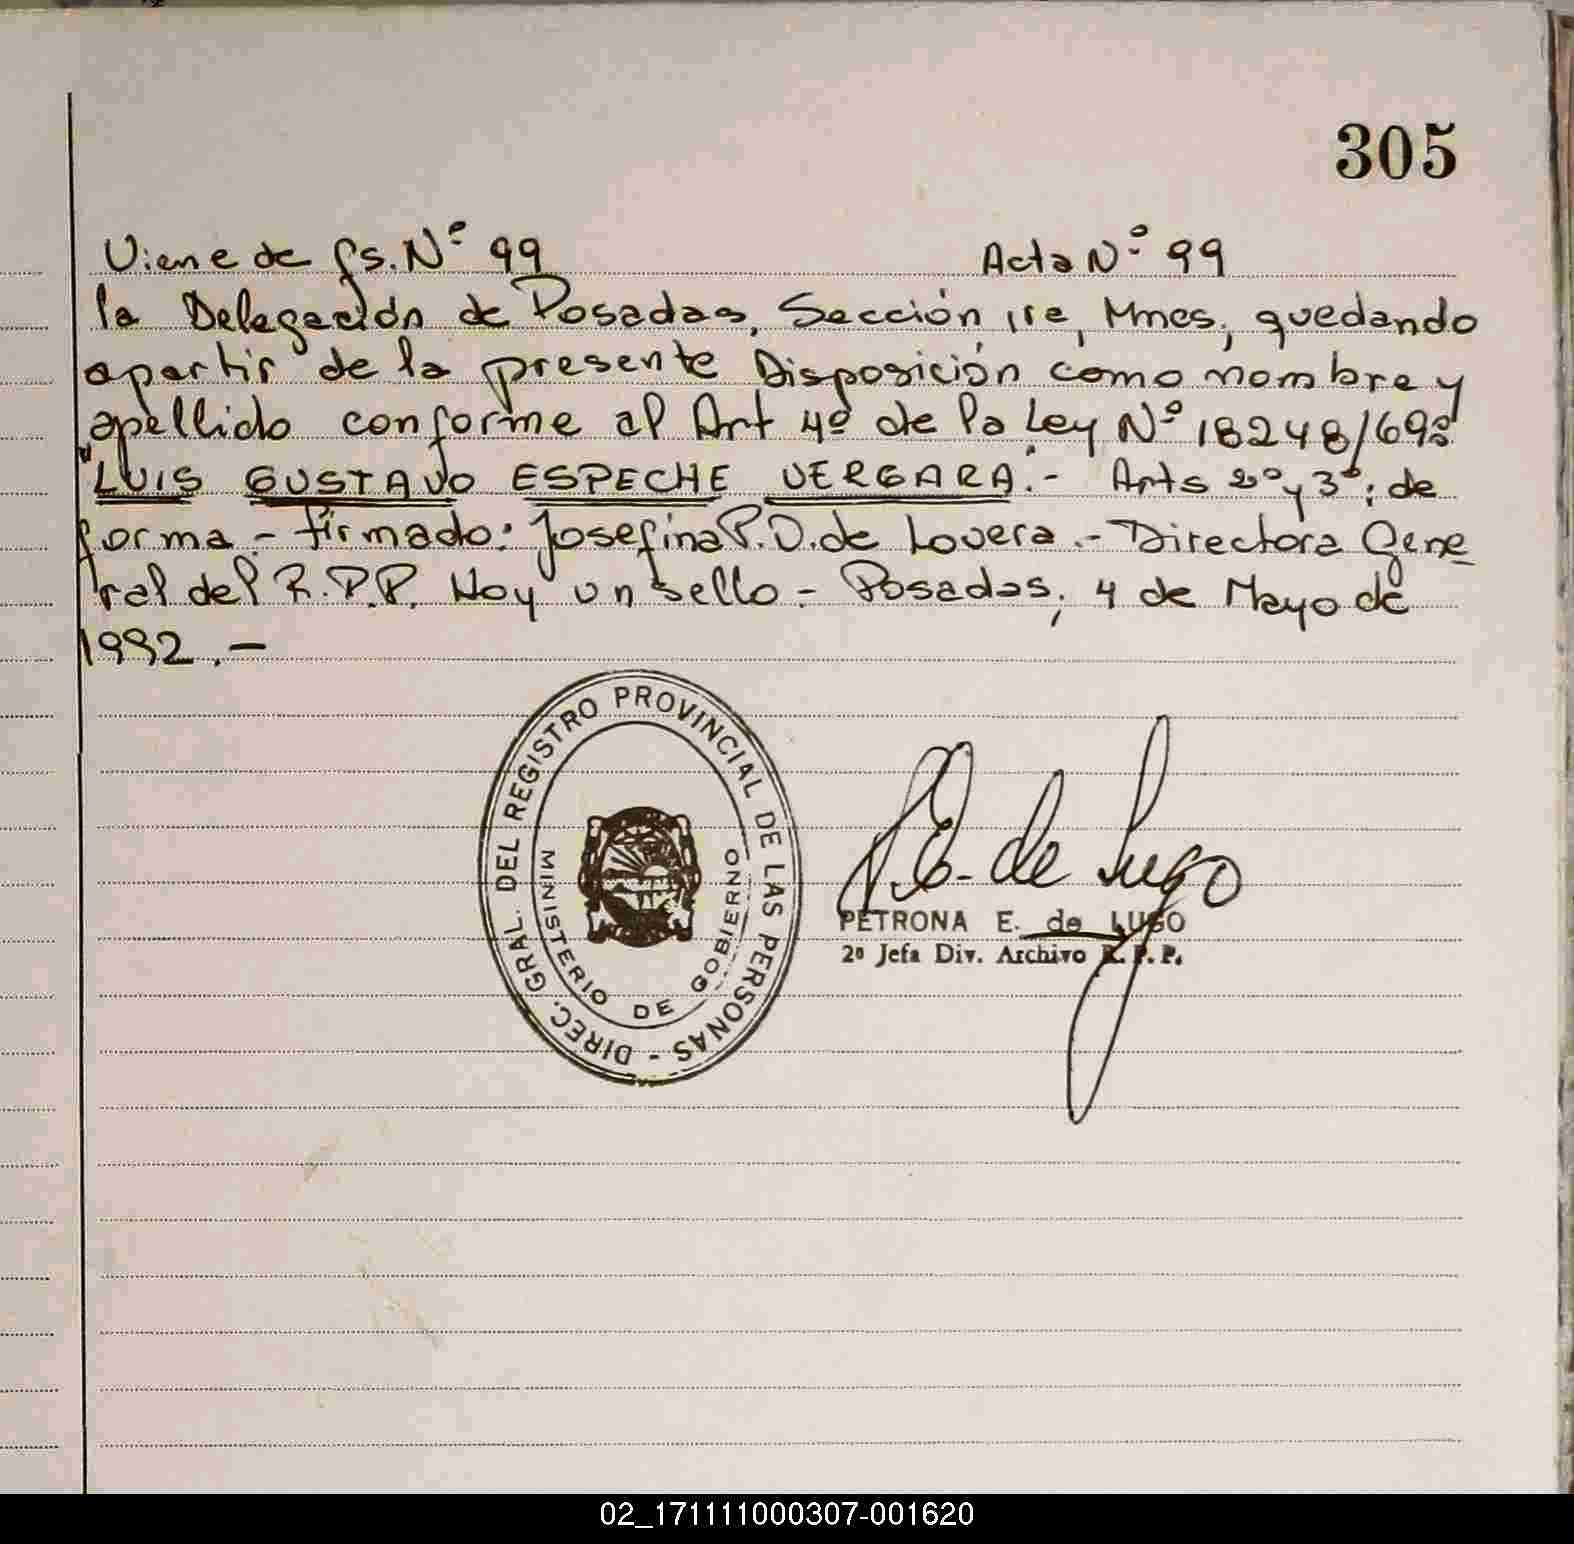 305
Viene de fs. Nº 99 Acta Nº 99
la Delegación de Posadas, Sección 1ra, Mnes, quedando
apartir de la presente Disposición como nombre y
apellido conforme al Art 4º de la Ley Nº 18248/69:
"LUIS GUSTAVO ESPECHE VERGARA.- Arts 2º y 3º: de
forma - firmado: Josefina P.D. de Lovera.- Directora Gene
ral del R.P.P. Hay un sello - Posadas, 4 de Mayo de
1992.-
DIREC. GRAL. DEL REGISTRO PROVINCIAL DE LAS PERSONAS -
MINISTERIO DE GOBIERNO
P.E. de Lugo
PETRONA E. de LUGO
2º Jefa Div. Archivo R.P.P.
02_171111000307-001620